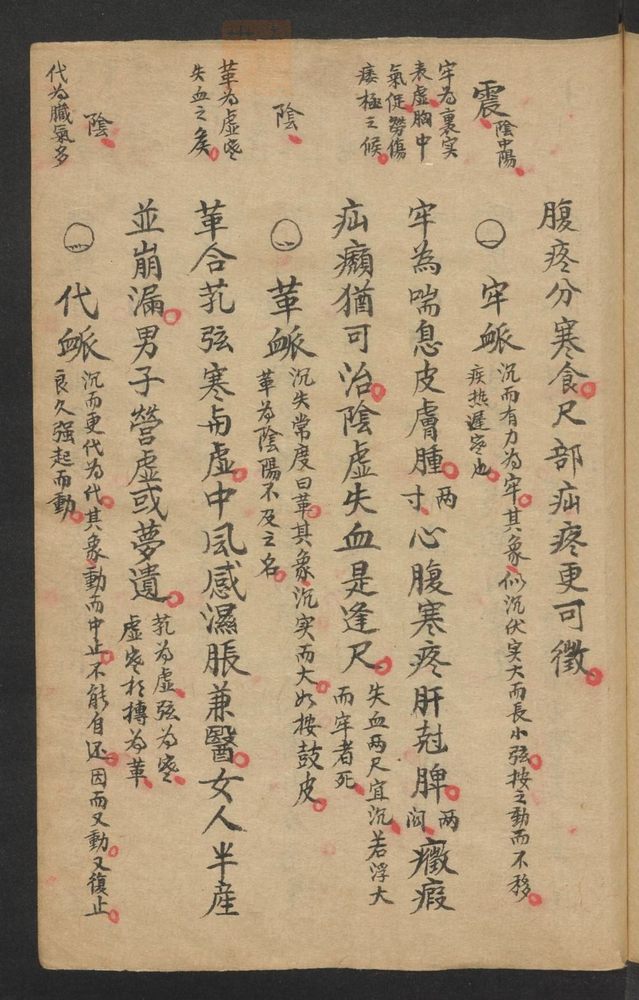 腹疼分寒食尺部疝疼更可徵
震 陰中陽
牢脈
沉而有力為牢其象似沉伏实大而長小弦按之動而不移
疾热遲寒也
牢為裏实
表虛胸中
氣促勞傷
痿極之候
牢為喘息皮膚腫 兩寸 心腹寒疼肝尅脾 兩関 癥瘕
疝癩猶可治陰虛失血是逢尺 失血两尺宜沉若浮大
而牢者死
陰
革脈
沉失常度曰革其象沉实而大如按鼓皮
革為陰陽不及之名
革為虛寒
失血之候
革合芤弦寒与虛中风感濕脹兼醫女人半産
並崩漏男子營虛或夢遺 芤為虛弦為寒
虛寒相摶為革
陰
代脈
沉而更代為代其象動而中止不能自还因而又動又復止
良久强起而動
代為臟氣多